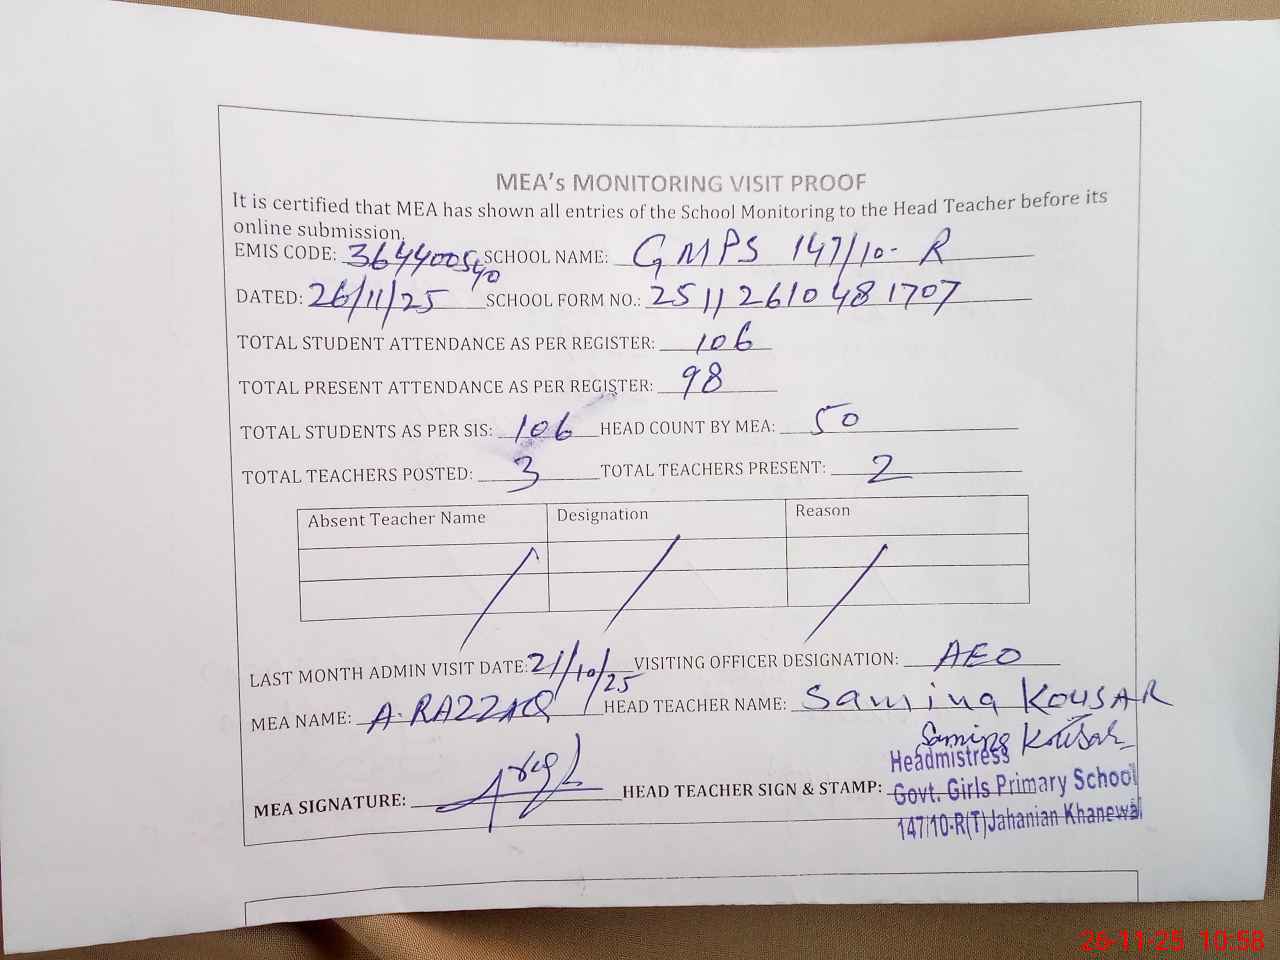 MEA's MONITORING VISIT PROOF
It is certified that MEA has shown all entries of the School Monitoring to the Head Teacher before its
online submission.
EMIS CODE: 364400540 SCHOOL NAME: GMPS 147/10-R
DATED: 26/11/25 SCHOOL FORM NO.: 2511261048 1707
TOTAL STUDENT ATTENDANCE AS PER REGISTER: 106
TOTAL PRESENT ATTENDANCE AS PER REGISTER: 98
TOTAL STUDENTS AS PER SIS: 106 HEAD COUNT BY MEA: 50
TOTAL TEACHERS POSTED: 3 TOTAL TEACHERS PRESENT: 2
Absent Teacher Name Designation Reason
LAST MONTH ADMIN VISIT DATE: 21/10/25 VISITING OFFICER DESIGNATION: AEO
MEA NAME: A.RAZZAQ HEAD TEACHER NAME: Samina KOUSAR
Samina Kousar
Headmistress
MEA SIGNATURE: HEAD TEACHER SIGN & STAMP: Govt. Girls Primary School
147/10-R(T)Jahanian Khanewal
26-11-25 10:58